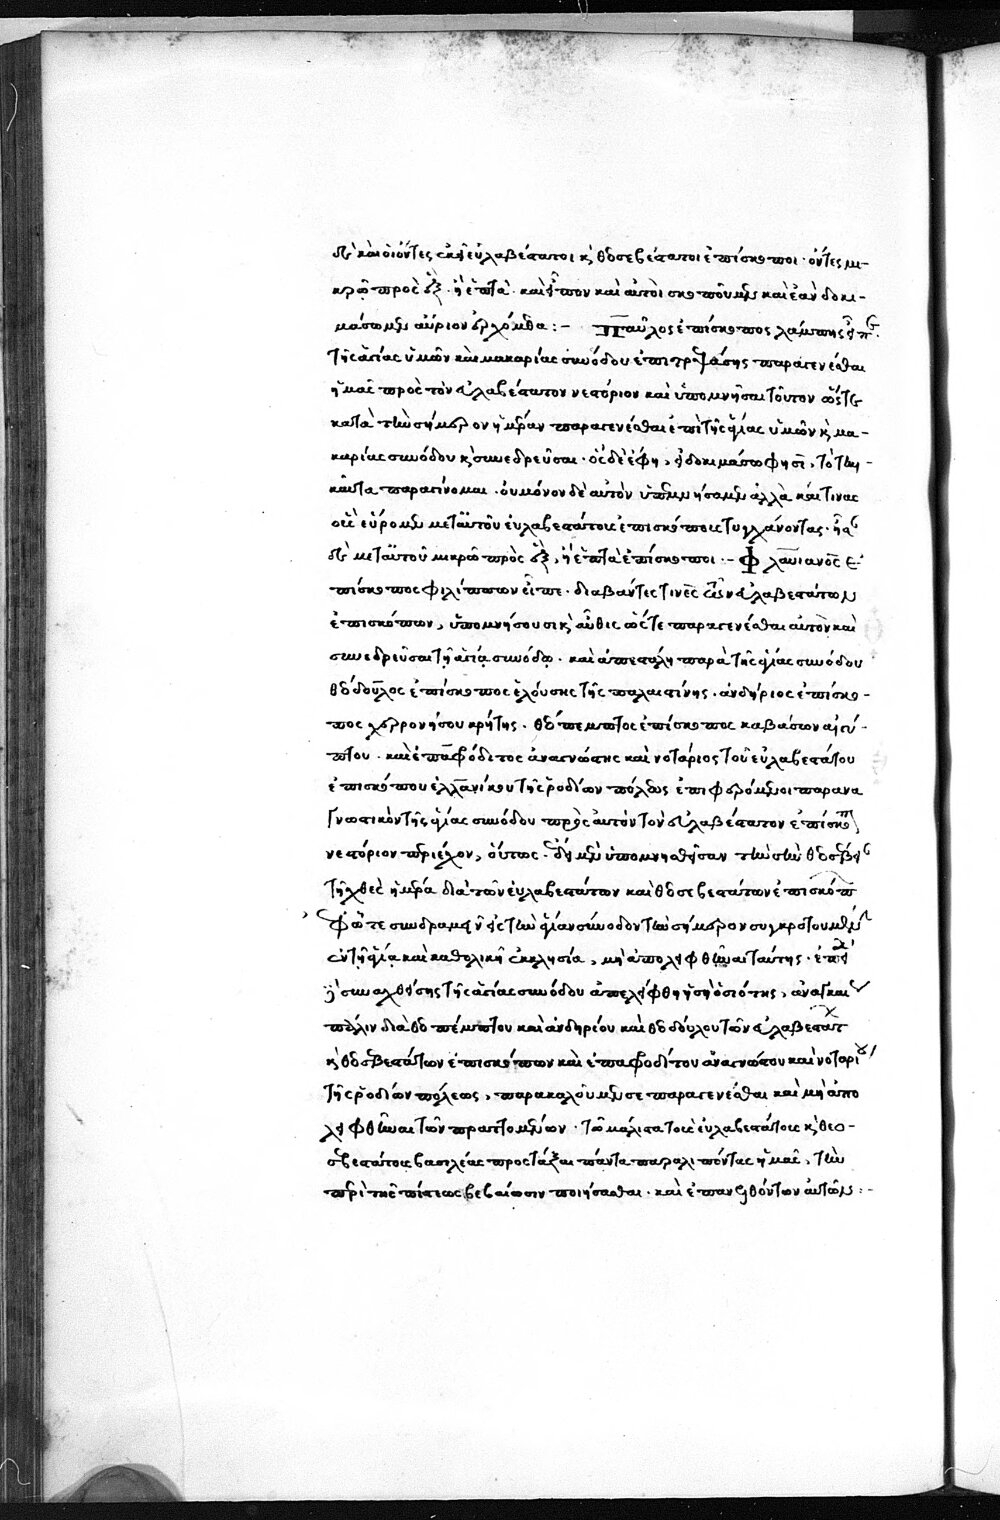 δὲ καὶ οἱ ὄντες ἐκεῖ εὐλαβέστατοι κ θεοσεβέστατοι ἐπίσκοποι · ὄντες μι-
κρῶ πρὸς ἓξ · ἢ ἑπτὰ · καὶ εἶπον καὶ αὐτοὶ σκοποῦμεν καὶ ἐὰν δοκι-
μάσωμεν αὔριον ἐρχόμεθα :- Παῦλος ἐπίσκοπος λάμπης εἶπ.
τῆς ἁγίας ὑμῶν καὶ μακαρίας συνόδου ἐπιτρεψάσης παραγενέσθαι
ἡμᾶς πρὸς τὸν εὐλαβέστατον νεστόριον καὶ ὑπομνῆσαι τοῦτον ὥστε
κατὰ τὴν σήμερον ἡμέραν παραγενέσθαι ἐπὶ τῆς ἁγίας ὑμῶν κ μα-
καρίας συνόδου κ συνεδρεῦσαι · ὁ δὲ ἔφη, εἰ δοκιμάσω φησὶ, τὸ τηνι-
καῦτα παραγίνομαι · οὐ μόνον δὲ αὐτὸν ὑπεμνήσαμεν ἀλλὰ καί τινας
οὓς εὕρομεν μεταὐτοῦ εὐλαβεστάτους ἐπισκόπους τυγχάνοντας · ἦσαν
δὲ μεταὐτοῦ μικρῶ πρὸς ἓξ, ἢ ἑπτὰ ἐπίσκοποι :- Φλαυιανὸς ἐ-
πίσκοπος φιλίππων εἶπε · διαβάντες τινὲς τῶν εὐλαβεστάτων
ἐπισκόπων, ὑπομνήσουσι κ αὖθις ὥστε παραγενέσθαι αὐτὸν καὶ
συνεδρεῦσαι τῆ ἁγία συνόδω · καὶ ἀπεστάλη παρὰ τῆς ἁγίας συνόδου
θεόδουλος ἐπίσκοπος ἐλούσης τῆς παλαιστίνης · ἀνδήριος ἐπίσκο-
πος χερρονήσου κρήτης · θεόπεμπτος ἐπίσκοπος καβάσων αἰγύ-
πτου · καὶ ἐπαφρόδιτος ἀναγνώστης καὶ νοτάριος τοῦ εὐλαβεστάτου
ἐπισκόπου ἑλλανίκου τῆς ῥοδίων πόλεως ἐπιφερόμενοι παρανα
γνωστικὸν τῆς ἁγίας συνόδου πρὸς αὐτὸν τὸν εὐλαβέστατον ἐπίσκοπον
νεστόριον περιέχον, οὕτως · ἔδει μὲν ὑπομνησθεῖσαν τὴν σὴν θεοσέβειαν
τῆ χθὲς ἡμέρα διὰ τῶν εὐλαβεστάτων καὶ θεοσεβεστάτων ἐπισκόπ
συνδραμεῖν εἰς τὴν ἁγίαν σύνοδον τὴν σήμερον συγκροτουμένην
ἐν τῆ ἁγία καὶ καθολικῆ ἐκκλησία, μὴ ἀπολειφθῆναι ταύτης · ἐπεὶ
συναχθείσης τῆς ἁγίας συνόδου ἀπελείφθη ἡ σὴ ὁσιότης, ἀναγκαί
πάλιν διὰ θεοπέμπτου καὶ ἀνδηρίου καὶ θεοδούλου τῶν εὐλαβεστάτ
κ θεοσεβεστάτων ἐπισκόπων καὶ ἐπαφροδίτου ἀναγνώστου καὶ νοταρίου
τῆς ῥοδίων πόλεως, παρακαλοῦμέν σε παραγενέσθαι καὶ μὴ ἀπο
λειφθῆναι τῶν πραττομένων · τῶ μάλιστα τοὺς εὐλαβεστάτους κ θεο-
σεβεστάτους βασιλέας προστάξαι πάντα παραλιπόντας ἡμᾶς, τὴν
περὶ τῆς πίστεως βεβαίωσιν ποιήσασθαι · καὶ ἐπανελθόντων αὐτῶν :-